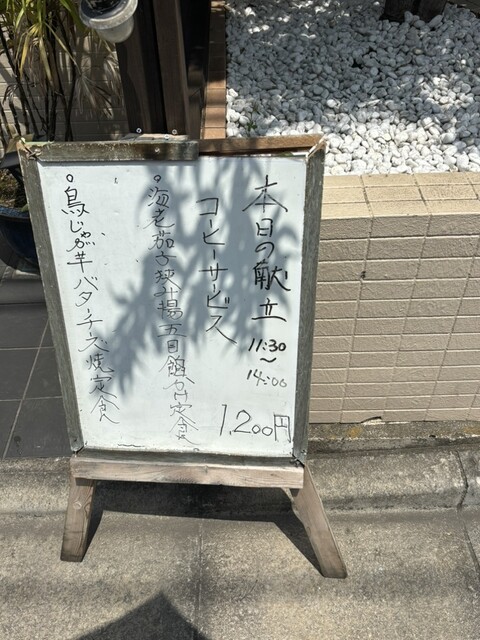 本日の献立
11:30
〜
14:00
コーヒーサービス
1,200円
。海老茄子挟み揚五目餡かけ定食
。鳥じゃが芋バターチーズ焼定食